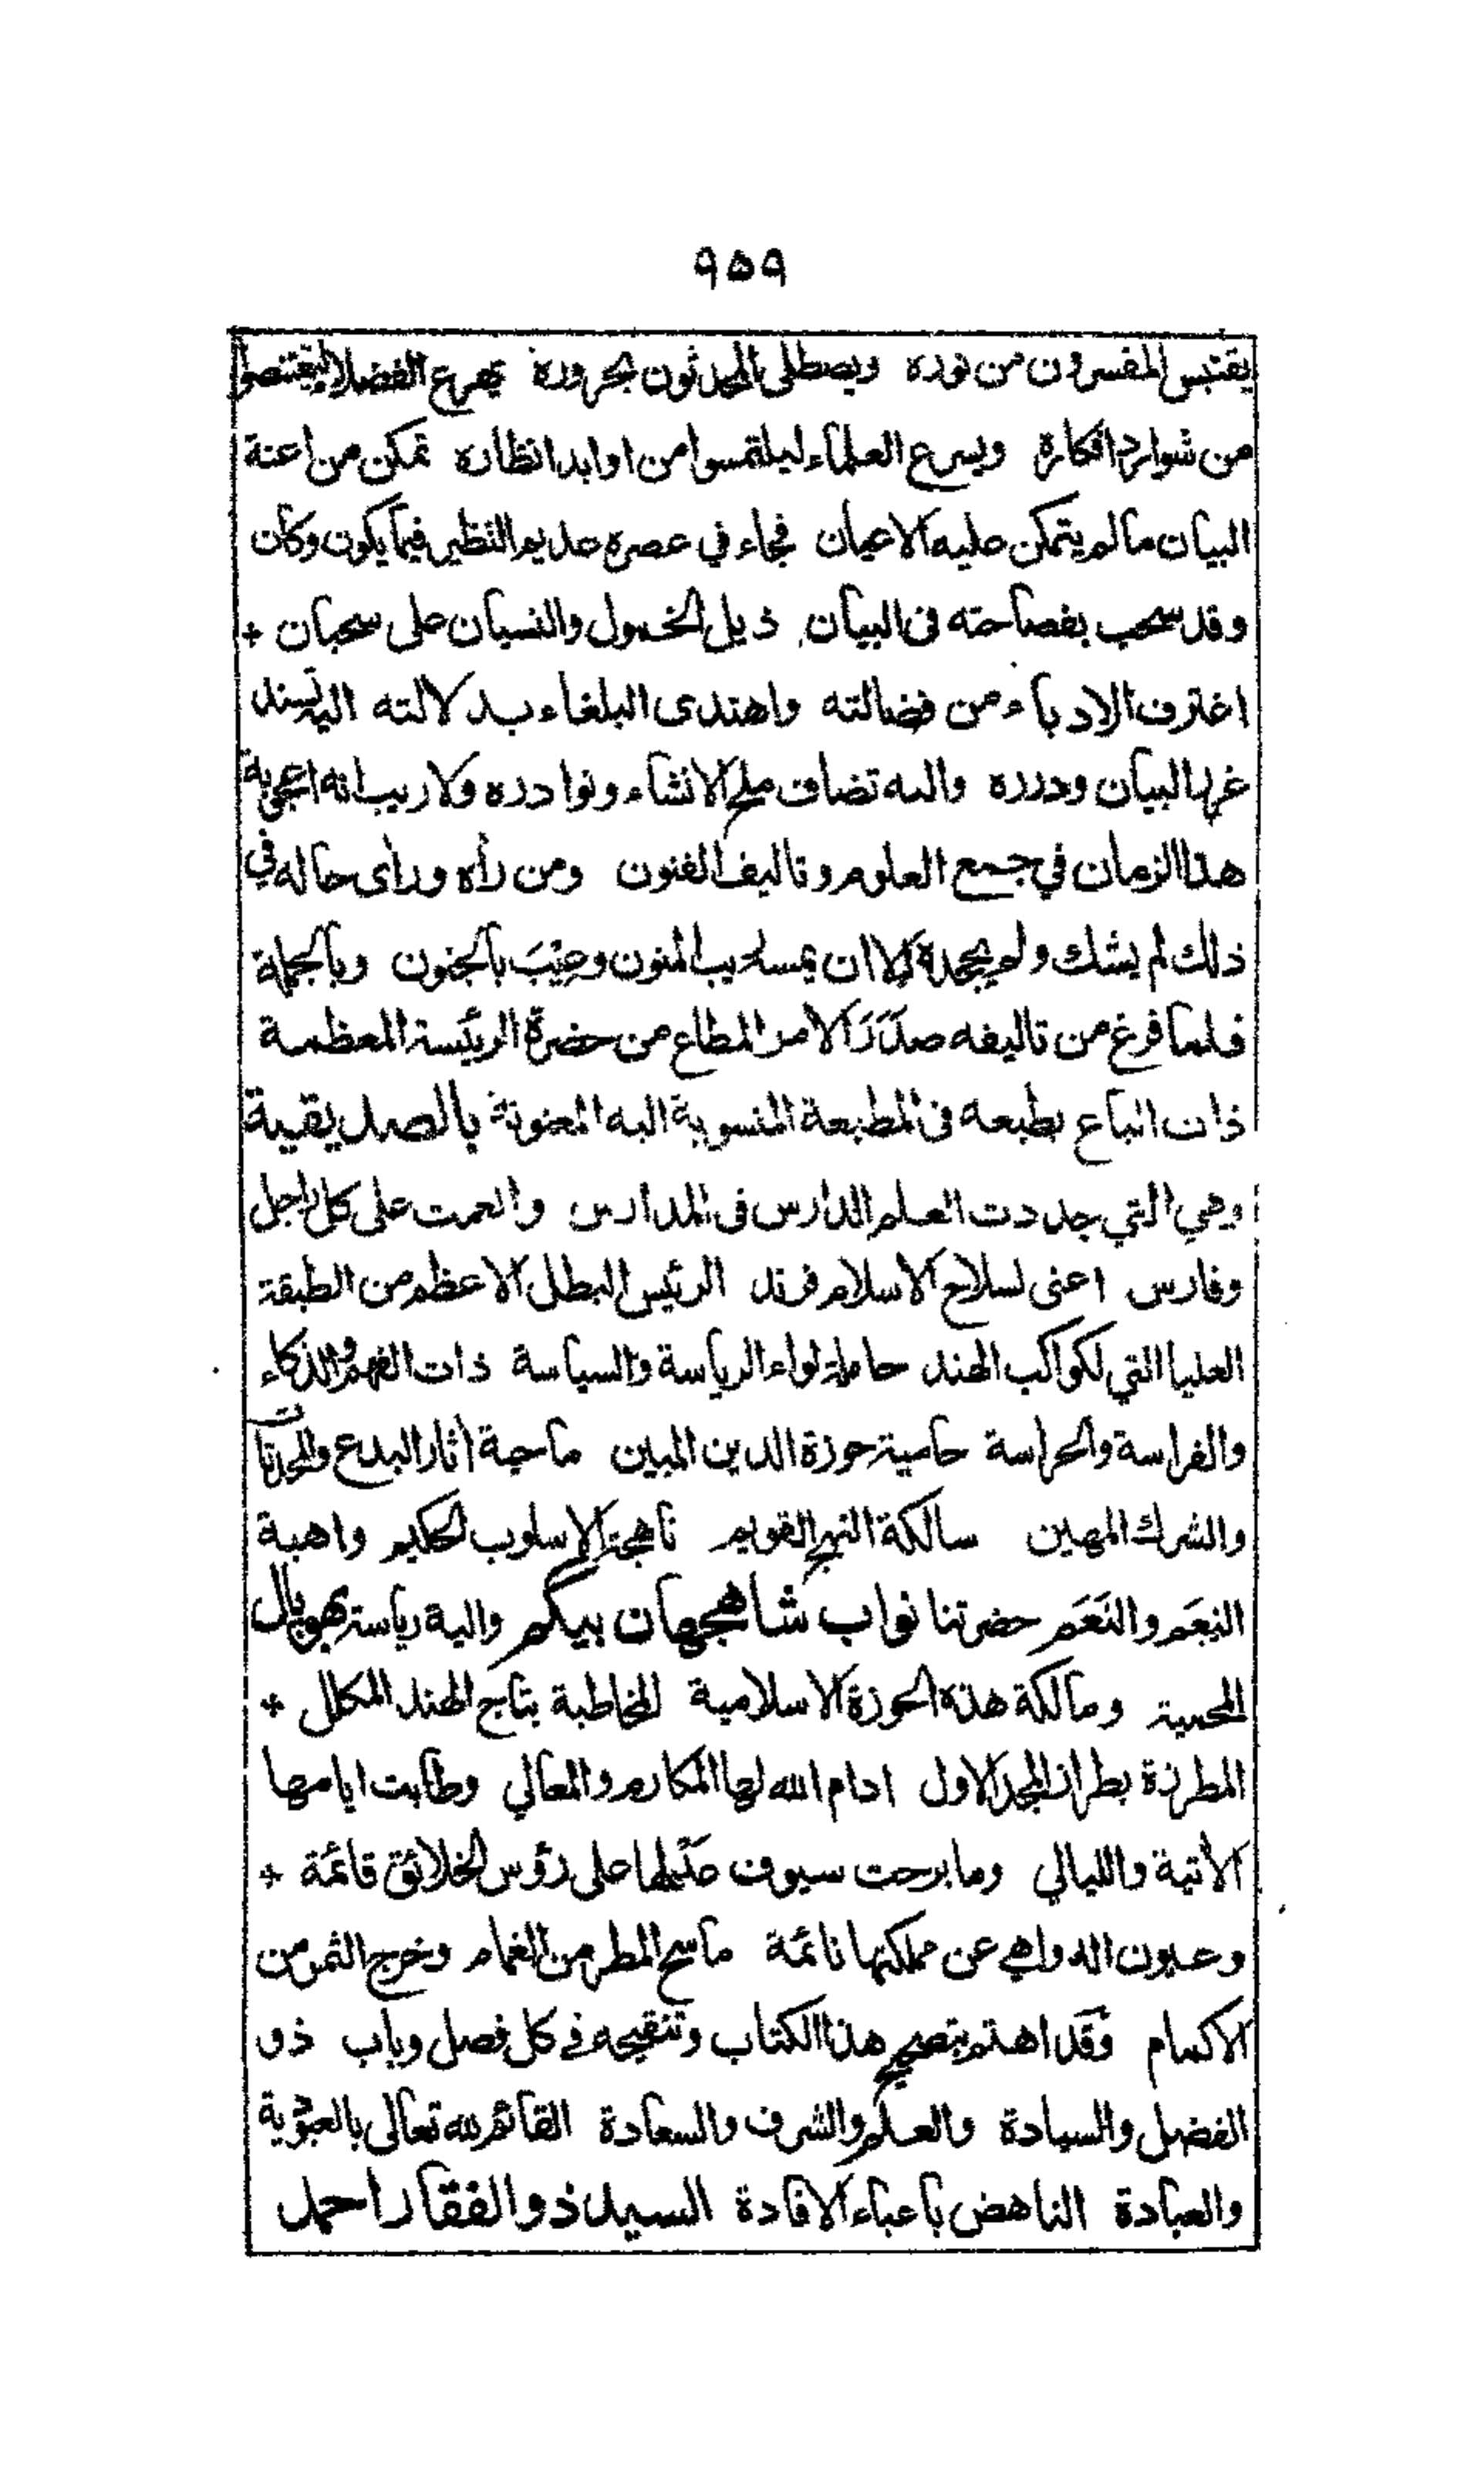 ٩٥٩
يقتبس المفسرون من نوره ويصطلى المحدثون بحروره يهرع الفضلا ليقتنصوا
من شوارد افكاره ويسرع العلماء ليلتمسوا من اوابد انظاره تمكن من اعنة
البيان مالم يتمكن عليه الاعيان فجاء في عصره عديم النظير فيما يكون وكان
وقد سحب بفصاحته فى البيان ذيل الخمول والنسيان على سحبان +
اغترف الادباء من فضالته واهتدى البلغاء بدلالته اليه تسند
غرر البيان ودرره واليه تضاف ملح الانشاء ونوادره ولا ريب انه اعجوبة
هذا الزمان في جمع العلوم وتاليف الفنون ومن رأه ورأى حاله في
ذلك لم يشك ولم يجحده الا ان يمسه ريب المنون وعِيْبَ بالجنون وبالجملة
فلما فرغ من تاليفه صَدَرَ الامر المطاع من حضرة الرئيسة المعظمة
ذات اتباع بطبعه فى المطبعة المنسوبة اليه المعنونة بالصديقية
وهي التي جددت العلم الدارس فى المدارس وانعمت على كل راجل
وفارس اعنى لسلاح الاسلام فرند الرئيس البطل الاعظم من الطبقة
العليا التي لكواكب الهند حاملة لواء الرياسة والسياسة ذات الفهم والذكاء
والفراسة والحراسة حامية حوزة الدين المبين ماحية أثار البدع والمحدثات
والشرك المهين سالكة النهج القويم ناهجة الاسلوب الحكيم واهبة
النِعَم والنَعَم حضرتنا نواب شاهجهان بيگم والية رياسة بهوپال
المحمية ومالكة هذه الحوزة الاسلامية المخاطبة بتاج الهند المكلل +
المطرزة بطراز المجد الاول ادام الله لها المكارم والمعالي وطابت ايامها
الأتية والليالي وما برحت سيوف عَدْلِها على رؤس الخلائق قائمة +
وعيون الدواهي عن مملكتها نائمة ما سح المطر من الغمام وخرج الثمر من
الاكمام وَقَد اهتم بتصحيح هذا الكتاب وتنقيحه في كل فصل وباب ذو
الفضل والسيادة والعلم والشرف والسعادة القائم لله تعالى بالعبودية
والعبادة الناهض باعباء الافادة السيد ذو الفقار احمد